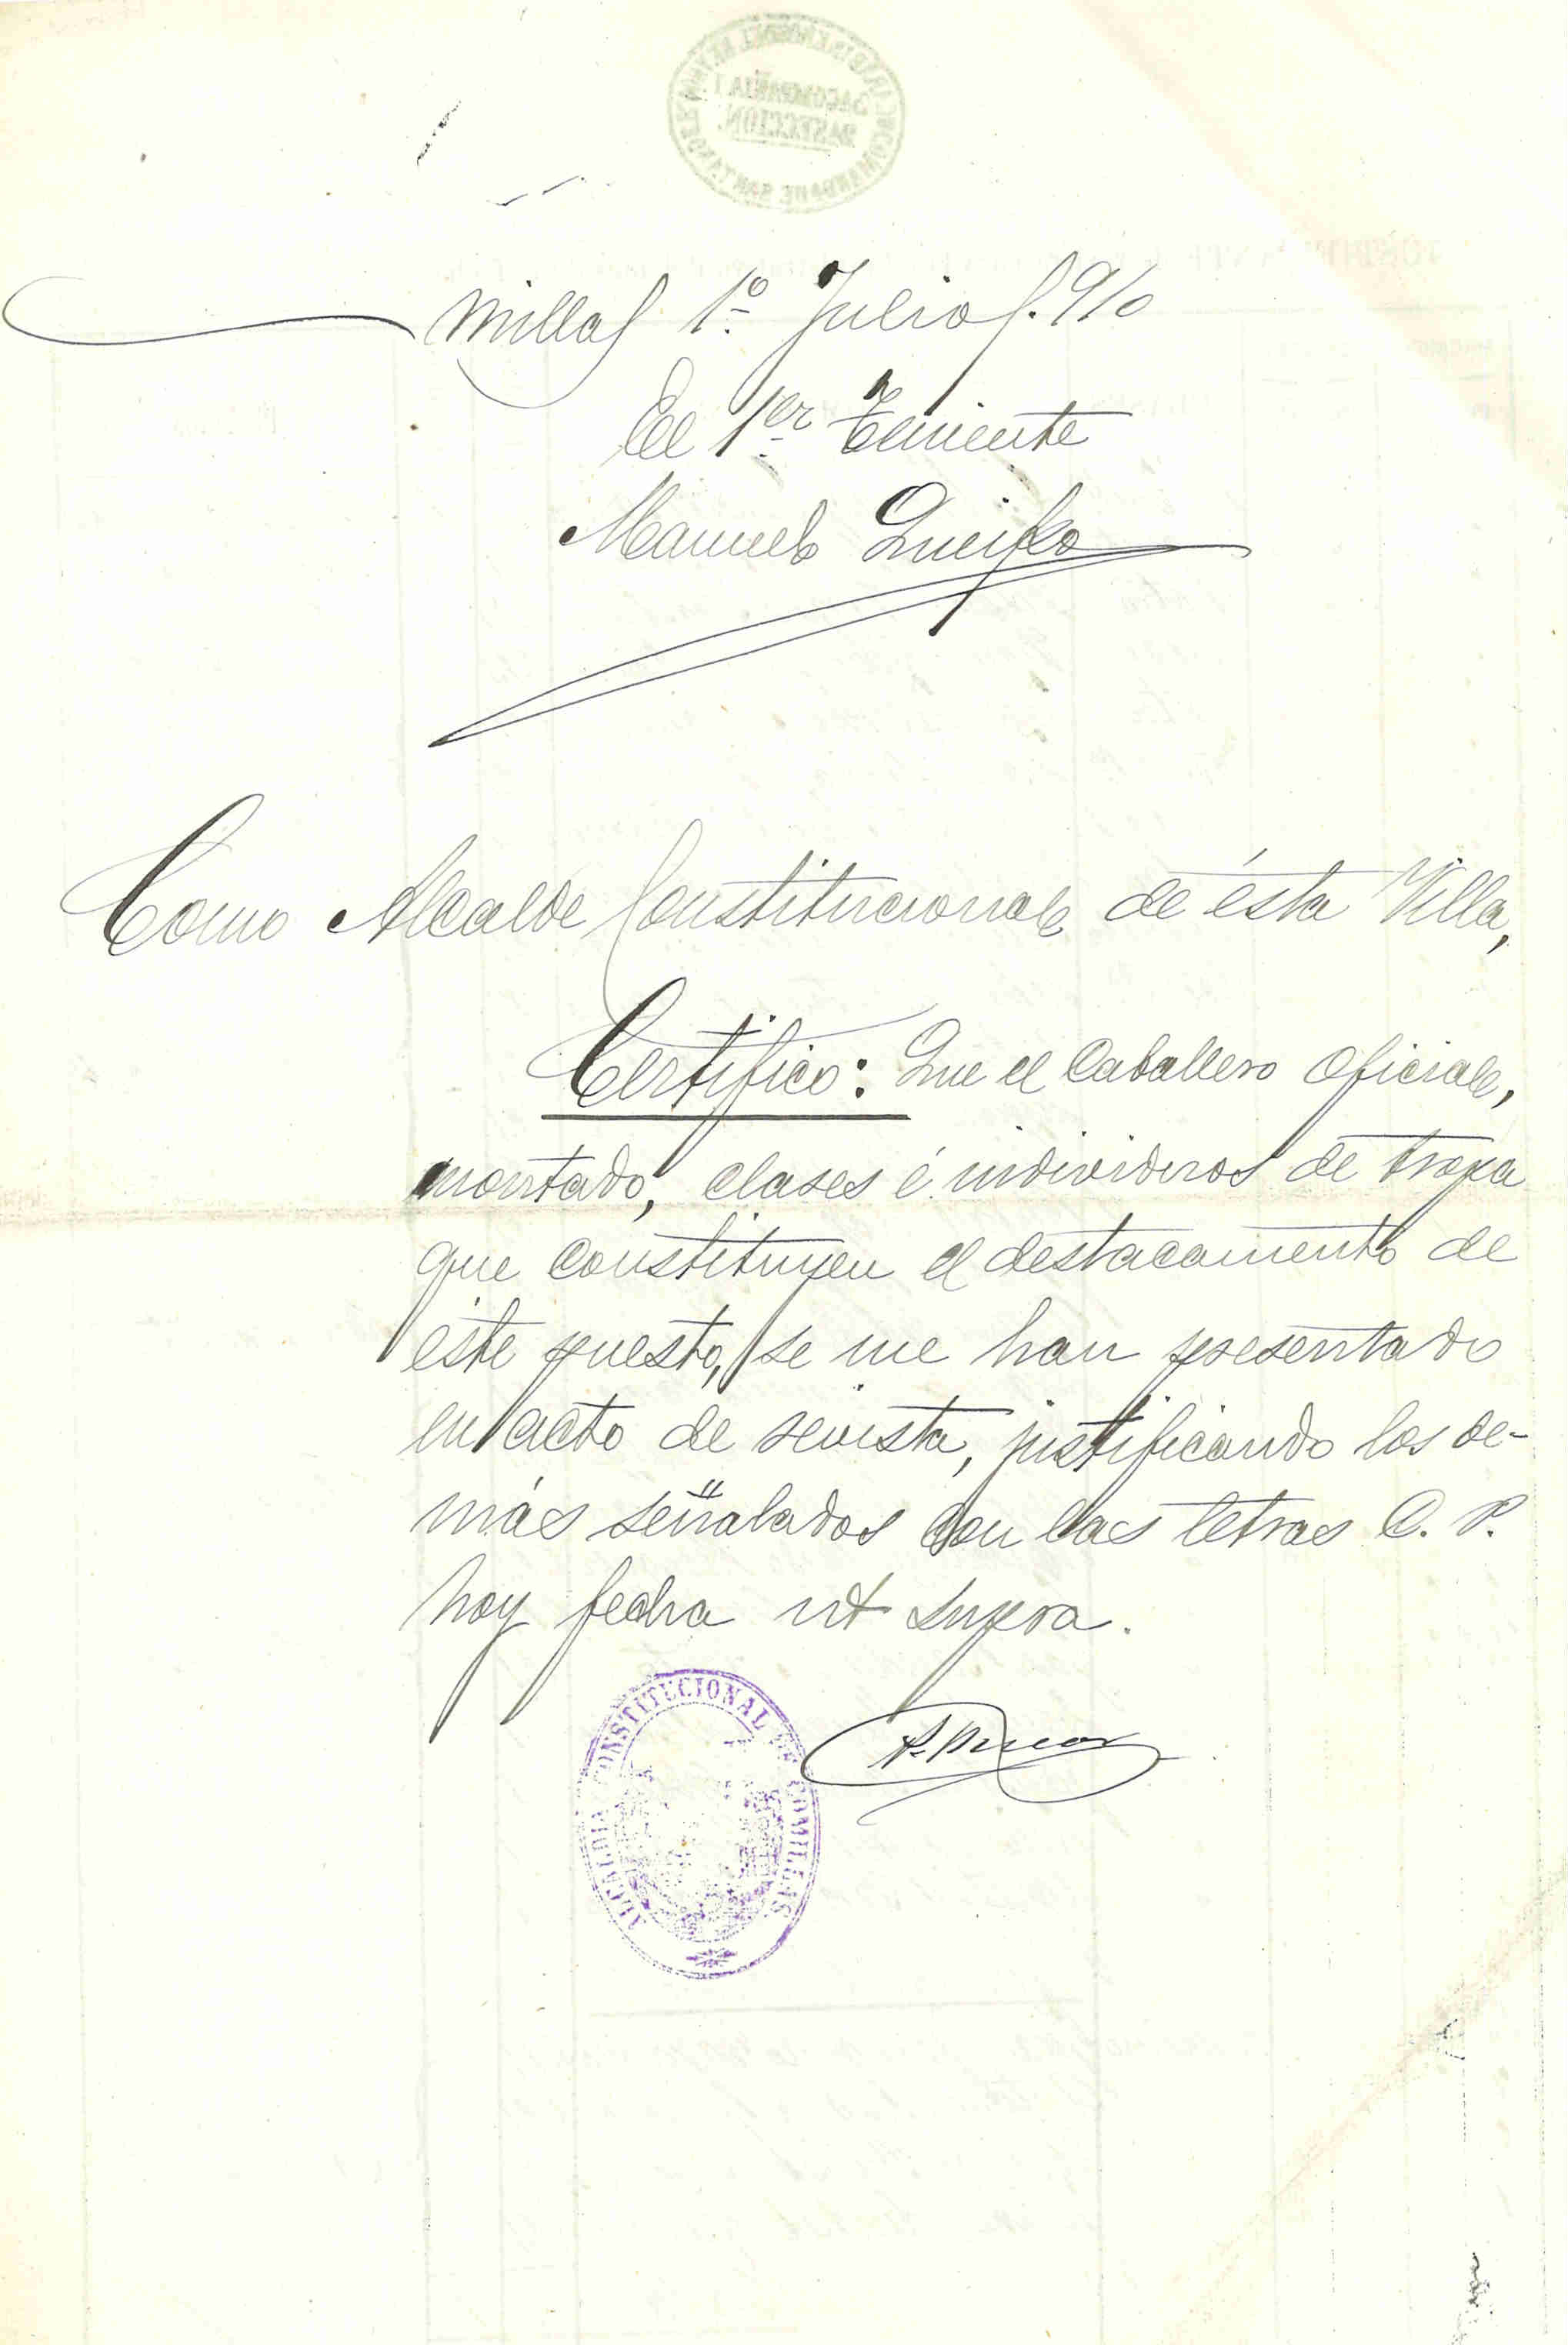 millas 1º Julio 910
El 1er Teniente
Manuel Queipo
Como Alcalde Constitucional de ésta Villa,
Certifico: Que el Caballero Oficial,
montado, clases é individuos de tropa
que constituyen el destacamento de
éste puesto, se me han presentado
en acto de revista, justificando los de-
más señalados con las letras C. P.
hoy fecha ut supra.
ALCALDIA CONSTITUCIONAL DE COMILLAS